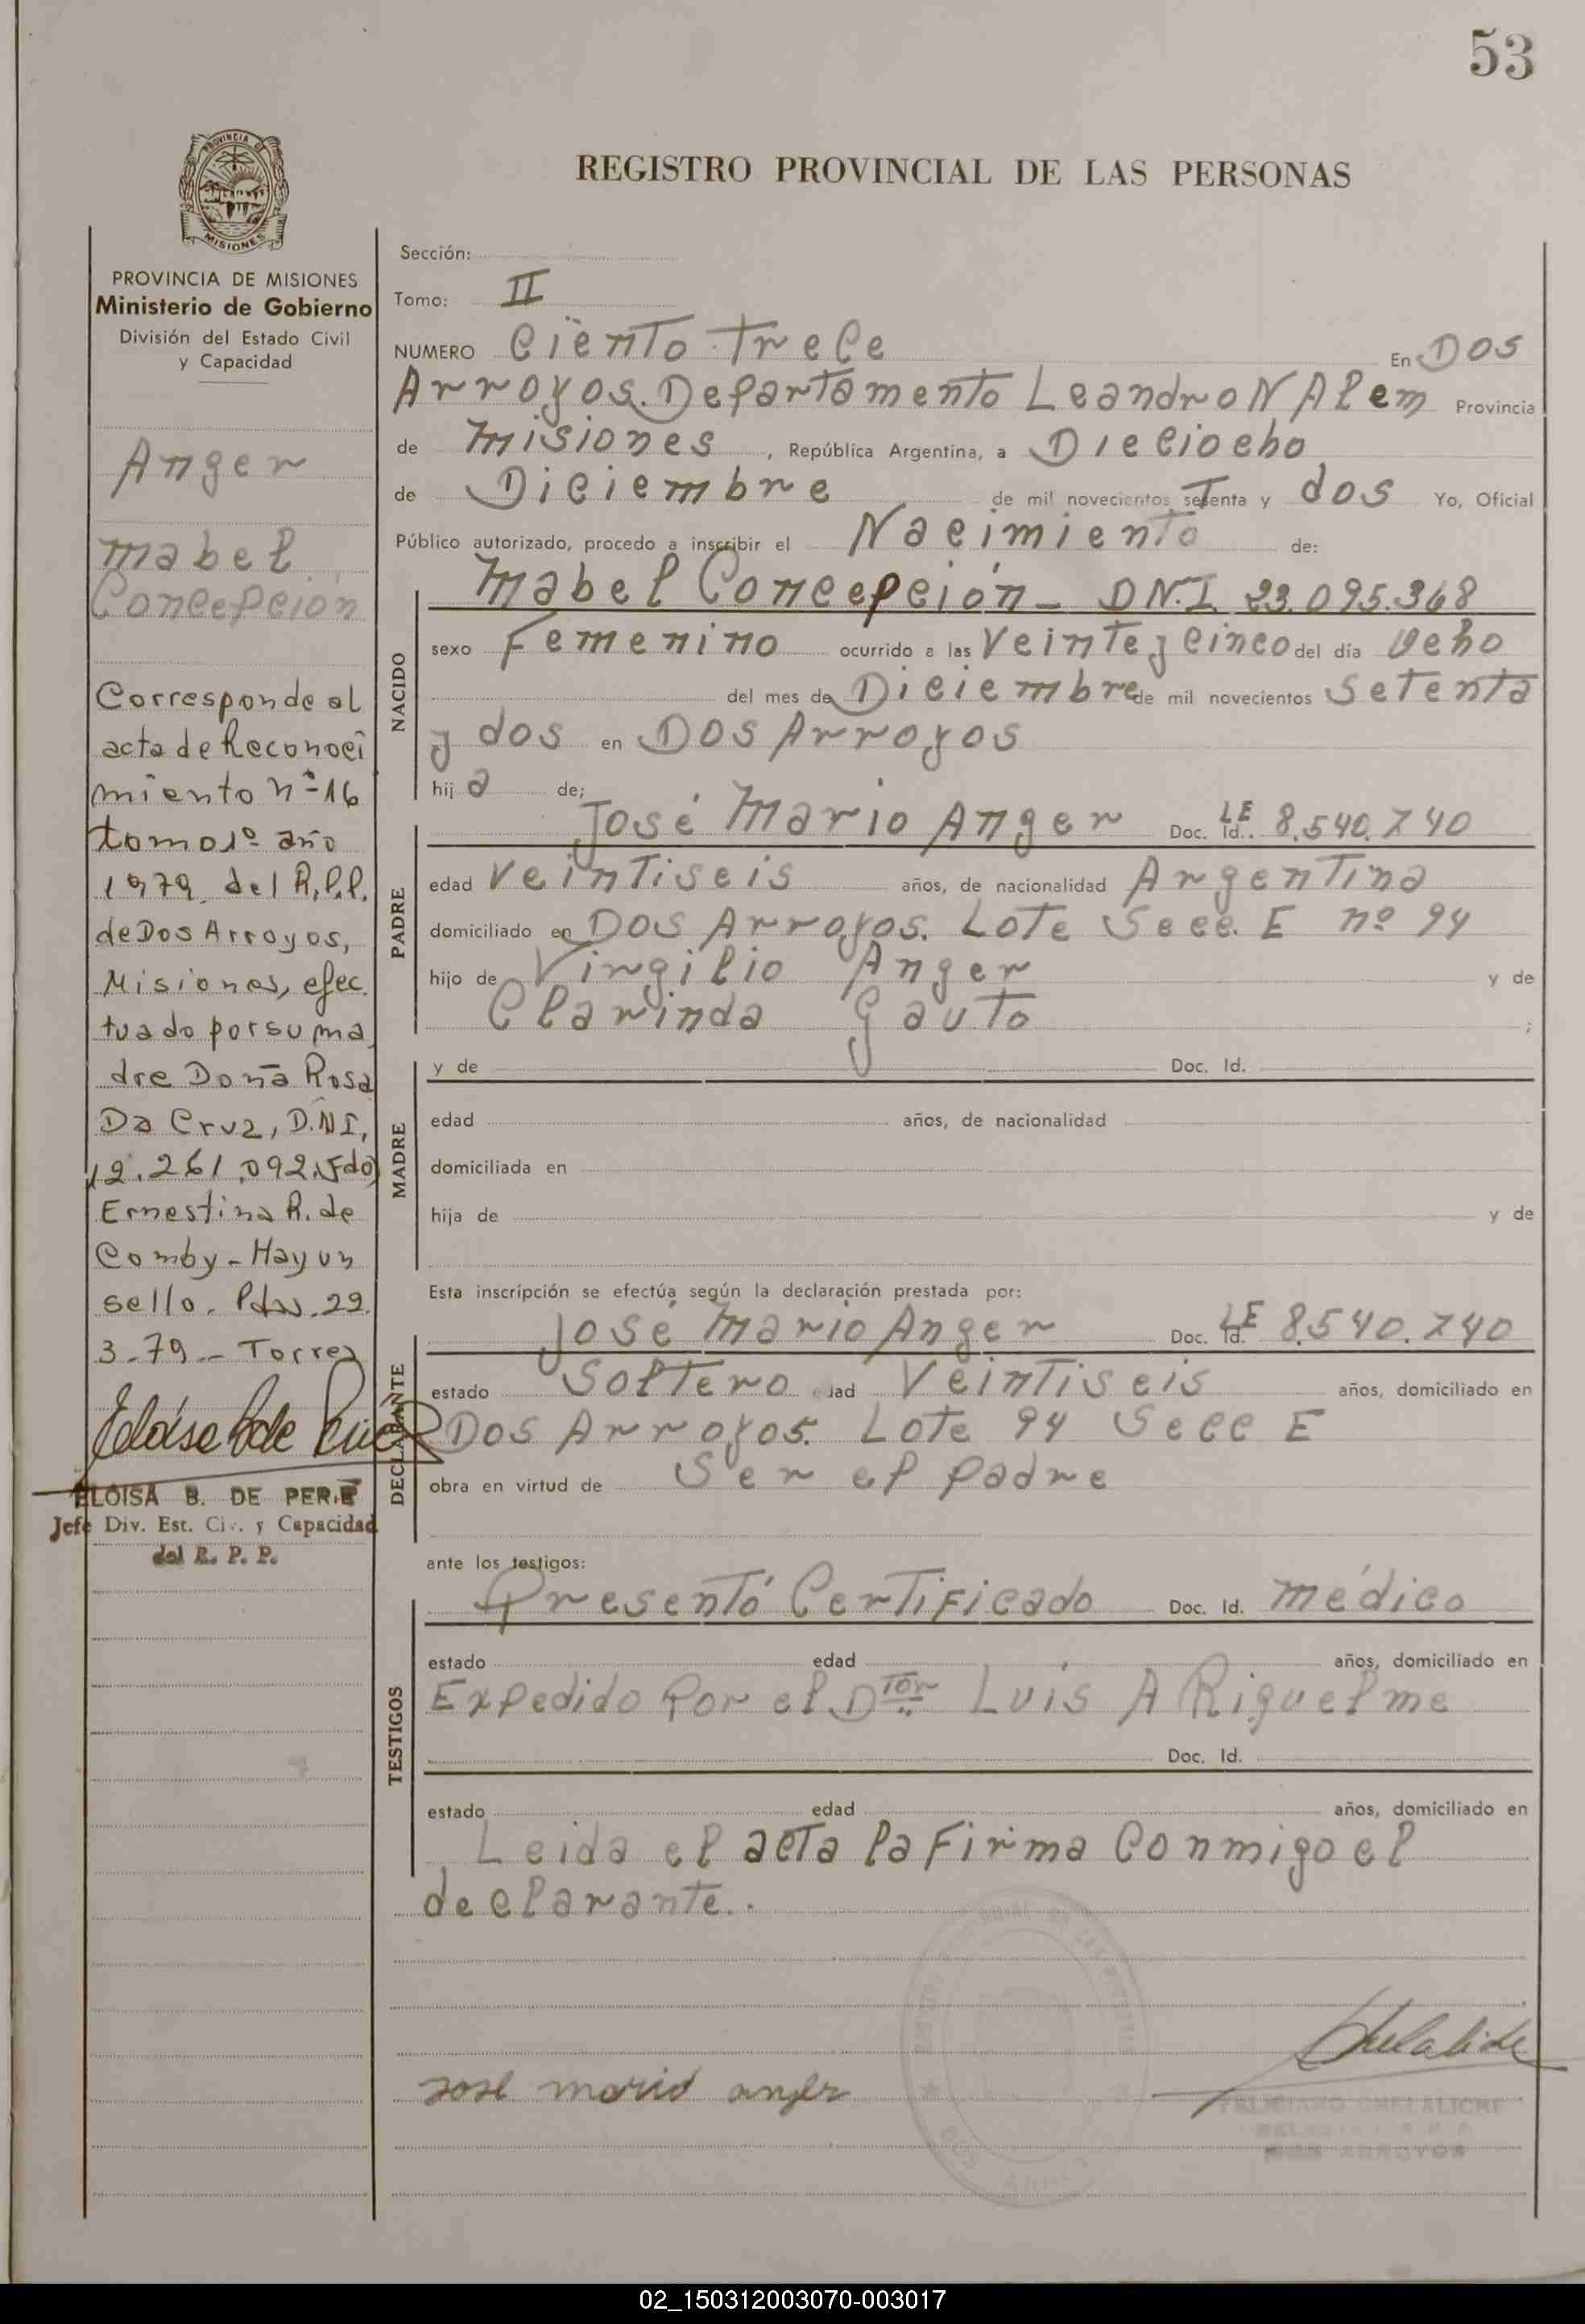 53
PROVINCIA DE
MISIONES
REGISTRO PROVINCIAL DE LAS PERSONAS
PROVINCIA DE MISIONES
Ministerio de Gobierno
División del Estado Civil
y Capacidad
Anger
Mabel
Concepción
Corresponde al
acta de Reconoci
miento nº 16
tomo 1º año
1979, del R.P.P.
de Dos Arroyos,
Misiones, efec
tuado por su ma
dre Doña Rosa
Da Cruz, D.N.I,
12.261.092. Fdo)
Ernestina R. de
Comby - Hay un
sello. Pdas. 29.
3-79 - Torres
ELOISA B. DE PERIE
Jefe Div. Est. Civ. y Capacidad
del R. P. P.
Sección:
Tomo: II
NUMERO Ciento Trece En Dos
Arroyos. Departamento Leandro N Alem Provincia
de Misiones, República Argentina, a Dieciocho
de Diciembre de mil novecientos setenta y dos Yo, Oficial
Público autorizado, procedo a inscribir el Nacimiento de:
NACIDO
Mabel Concepción - D.N.I. 23.095.368
sexo Femenino ocurrido a las Veinte y Cinco del día Ocho
del mes de Diciembre de mil novecientos Setenta
y dos en Dos Arroyos
hija de;
PADRE
José Mario Anger Doc. Id. LE 8.540.740
edad Veintiseis años, de nacionalidad Argentina
domiciliado en Dos Arroyos. Lote Secc. E nº 94
hijo de Virgilio Anger y de
Clarinda Gauto ;
MADRE
y de Doc. Id.
edad años, de nacionalidad
domiciliada en
hija de y de
Esta inscripción se efectúa según la declaración prestada por:
DECLARANTE
José Mario Anger Doc. Id. LE 8.540.740
estado Soltero edad Veintiseis años, domiciliado en
Dos Arroyos. Lote 94 Secc E
obra en virtud de Ser el padre
ante los testigos:
TESTIGOS
Presentó Certificado Doc. Id. médico
estado edad años, domiciliado en
Expedido por el Dtor Luis A Riquelme
Doc. Id.
estado edad años, domiciliado en
Leida el acta la Firma Conmigo el
declarante..
José mario anger
CHELALICHE
DOS ARROYOS
02_150312003070-003017